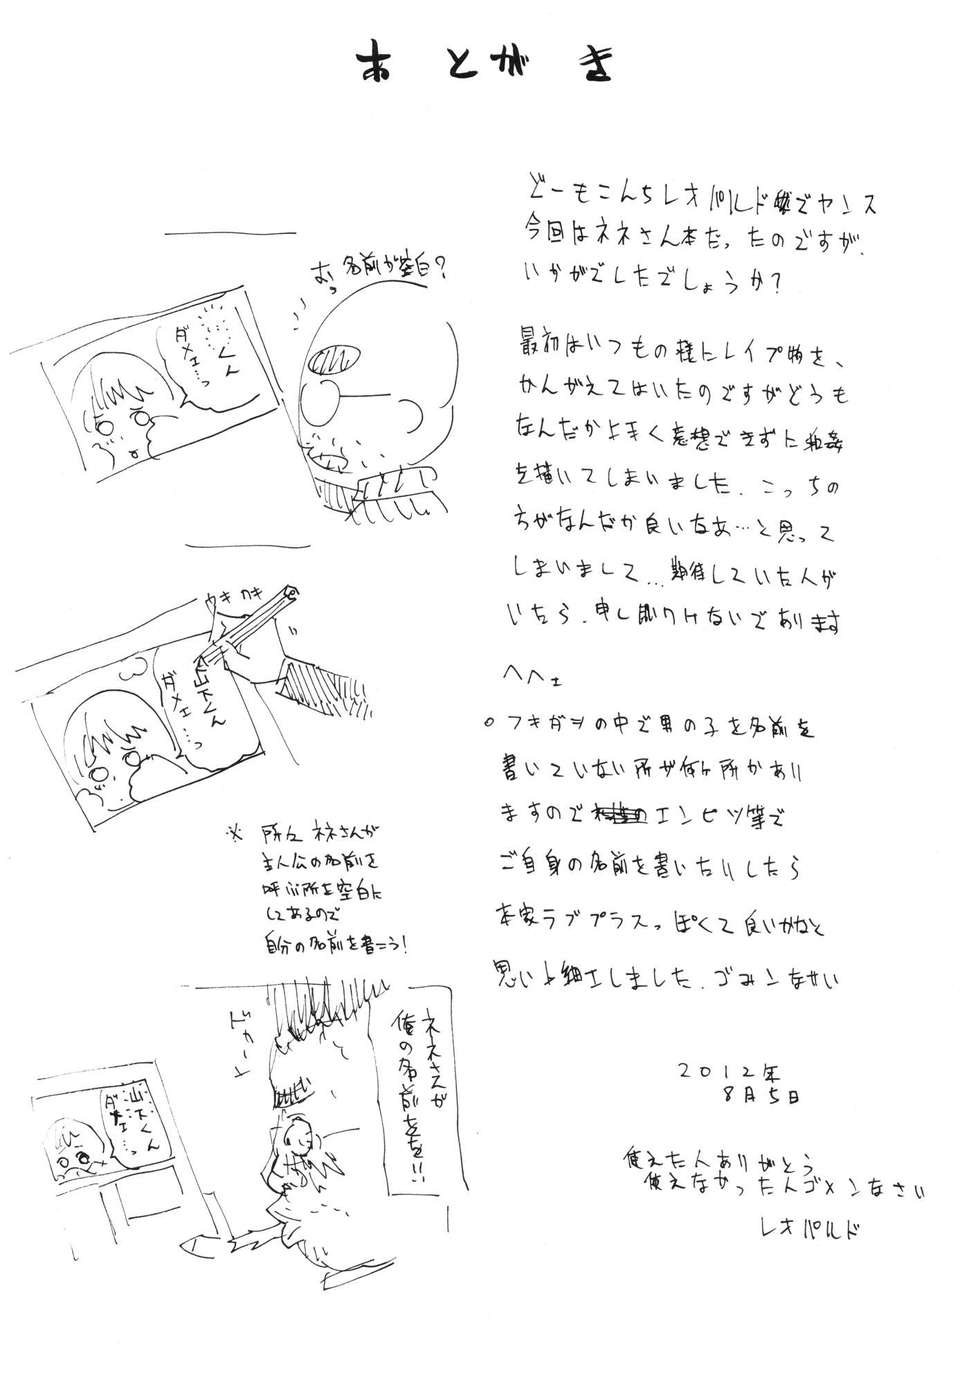 あとがき
どーもこんちレオパルドでヤンス
今回はネネさん本だったのですが、
いかがでしたでしょうか?
最初はいつもの様にレイプ物を、
かんがえてはいたのですがどうも
なんだか上手く妄想できずに和姦
を描いてしまいました。こっちの
方がなんだか良いなあ…と思って
しまいまして…期待していた人が
いたら、申し訳ないであります
へへェ
○フキダシの中で男の子を名前を
書いていない所が何ヶ所かあり
ますのでエンピツ等で
ご自身の名前を書いたりしたら
本家ラブプラスっぽくて良いかなと
思い細工しました。ゴメンなさい
2012年
8月5日
使えた人ありがとう
使えなかった人ゴメンなさい
レオパルド
おっ名前が空白?
くん
ダメェ…っ
ウキウキ
山下くん
ダメェ…っ
※所々ネネさんが
主人公の名前を
呼ぶ所を空白に
してあるので
自分の名前を書こう!
ネネさんが
俺の名前をを!!
山下くん
ダメェ…っ